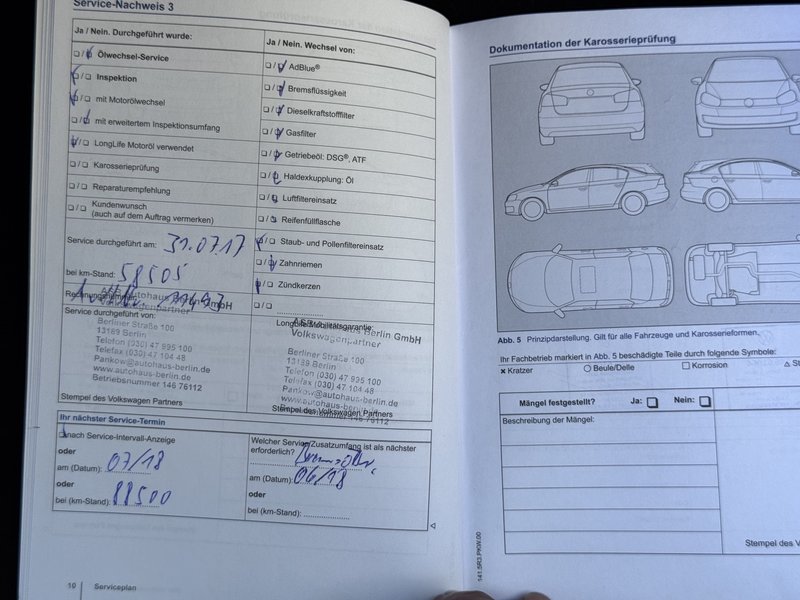 Service-Nachweis 3
Ja / Nein. Durchgeführt wurde:
Ölwechsel-Service
Inspektion
mit Motorölwechsel
mit erweitertem Inspektionsumfang
LongLife Motoröl verwendet
Karosserieprüfung
Reparaturempfehlung
Kundenwunsch
(auch auf dem Auftrag vermerken)
Service durchgeführt am: 31.07.17
bei km-Stand: 58505
Service durchgeführt von:
Berliner Straße 100
13189 Berlin
Telefon (030) 47 995 100
Telefax (030) 47 104 48
Pankow@autohaus-berlin.de
www.autohaus-berlin.de
Betriebsnummer 146 76112
Stempel des Volkswagen Partners
Ja / Nein. Wechsel von:
AdBlue®
Bremsflüssigkeit
Dieselkraftstofffilter
Gasfilter
Getriebeöl: DSG®, ATF
Haldexkupplung: Öl
Luftfiltereinsatz
Reifenfüllflasche
Staub- und Pollenfiltereinsatz
Zahnriemen
Zündkerzen
LongLife Mobilitätsgarantie:
Berlin GmbH
Volkswagenpartner
Berliner Straße 100
13189 Berlin
Telefon (030) 47 995 100
Telefax (030) 47 104 48
Pankow@autohaus-berlin.de
www.autohaus-berlin.de
Stempel des Volkswagen Partners
Ihr nächster Service-Termin
nach Service-Intervall-Anzeige
oder
am (Datum): 07/18
oder
bei (km-Stand): 88500
Welcher Service/Zusatzumfang ist als nächster
erforderlich?
am (Datum): 06/18
oder
bei (km-Stand):
10 Serviceplan
Dokumentation der Karosserieprüfung
Abb. 5 Prinzipdarstellung. Gilt für alle Fahrzeuge und Karosserieformen.
Ihr Fachbetrieb markiert in Abb. 5 beschädigte Teile durch folgende Symbole:
Kratzer Beule/Delle Korrosion
Mängel festgestellt? Ja: Nein:
Beschreibung der Mängel:
Stempel des V
141.5R3.PKW.00